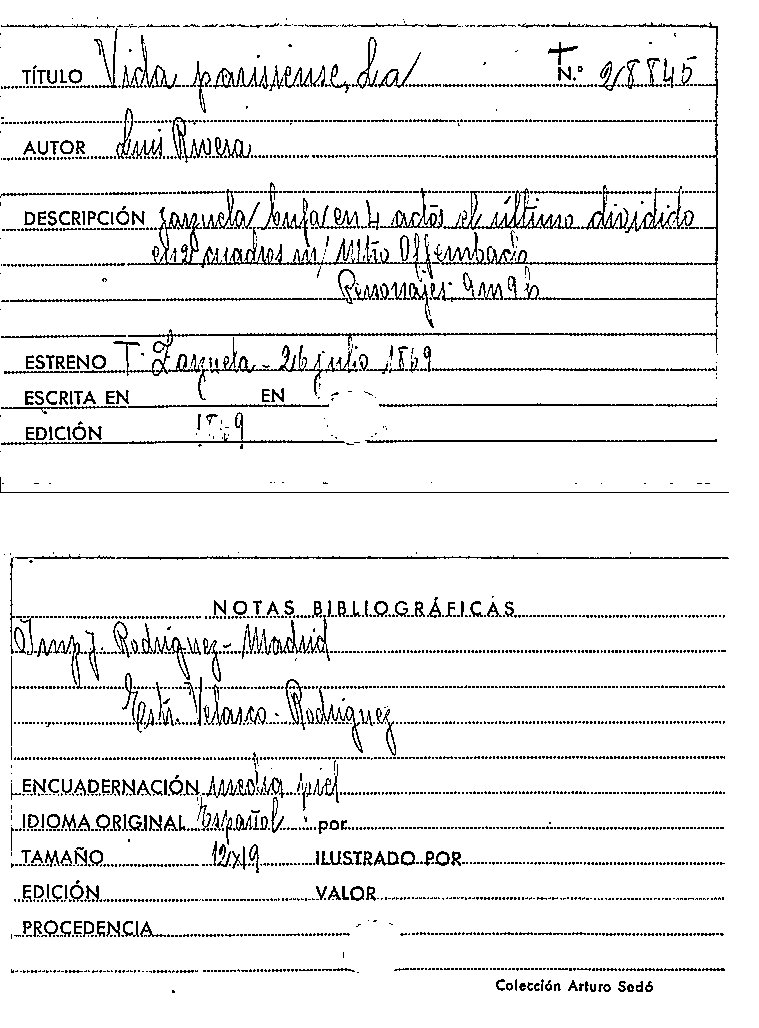 TÍTULO Vida parisiense, La N.º 28845
AUTOR Luis Rivera
DESCRIPCIÓN zarzuela bufa en 4 actos el último dividido
en 2 cuadros m/ Mtro Offembach
Personajes: 9m 9h
ESTRENO T. Zarzuela - 26 julio 1869
ESCRITA EN EN
EDICIÓN 1869
NOTAS BIBLIOGRÁFICAS
Imp J. Rodríguez - Madrid
Estr. Velasco - Rodríguez
ENCUADERNACIÓN media piel
IDIOMA ORIGINAL Español por
TAMAÑO 12x19 ILUSTRADO POR
EDICIÓN VALOR
PROCEDENCIA
Colección Arturo Sedó